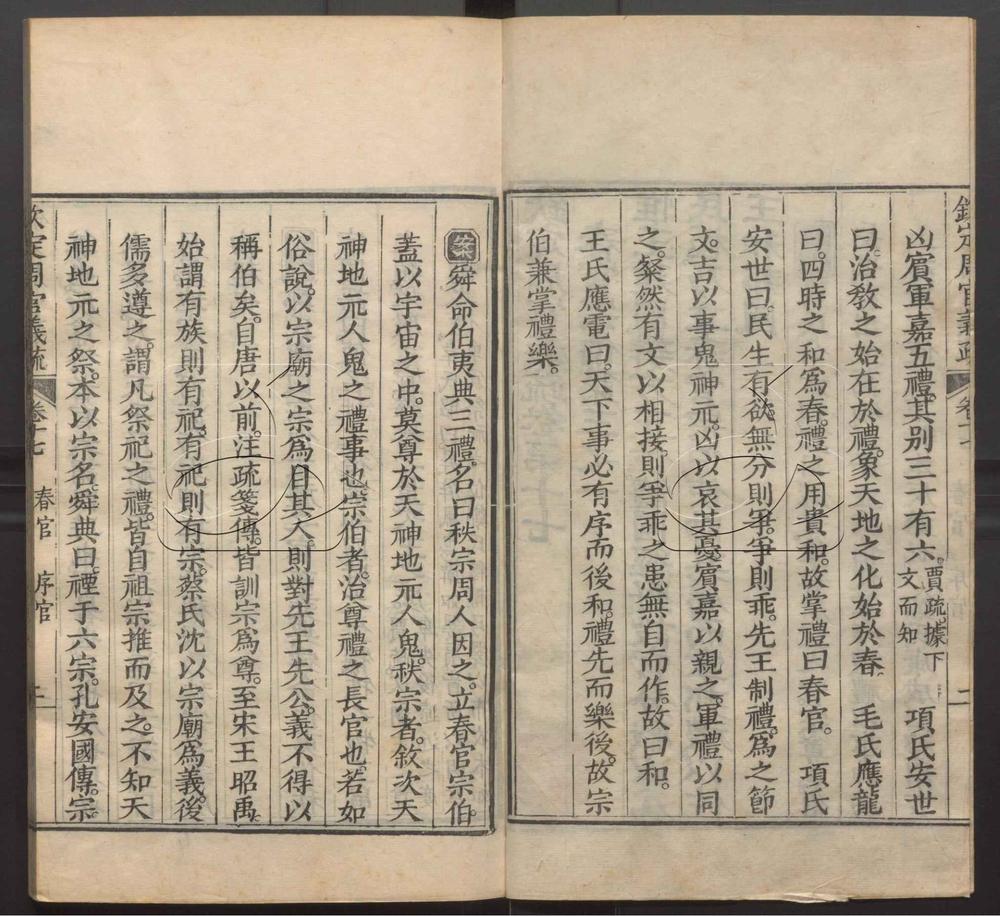 凶賓軍嘉五禮。其别三十有六。賈疏。據下文而知 項氏安世
曰。治敎之始在於禮。象天地之化始於春。 毛氏應龍
曰。四時之和爲春。禮之用貴和。故掌禮曰春官。 項氏
安世曰。民生有欲無分則爭。爭則乖。先王制禮。爲之節
文。吉以事鬼神元。凶以哀其憂。賓嘉以親之。軍禮以同
之。粲然有文以相接。則爭乖之患無自而作。故曰和。
王氏應電曰。天下事必有序而後和。禮先而樂後。故宗
伯兼掌禮樂。
案舜命伯夷典三禮。名曰秩宗周人因之。立春官宗伯。
蓋以宇宙之中。莫尊於天神地元人鬼。秩宗者。敘次天
神地元人鬼之禮事也。宗伯者。治尊禮之長官也。若如
俗說。以宗廟之宗爲目其人。則對先王先公。義不得以
稱伯矣。自唐以前。注疏箋傳。皆訓宗爲尊。至宋王昭禹。
始謂有族則有祀。有祀則有宗。蔡氏沈以宗廟爲義。後
儒多遵之。謂凡祭祀之禮。皆自祖宗推而及之。不知天
神地元之祭。本以宗名。舜典曰。禋于六宗。孔安國傳。宗。
欽定周官義疏 卷十七 春官 序官 二